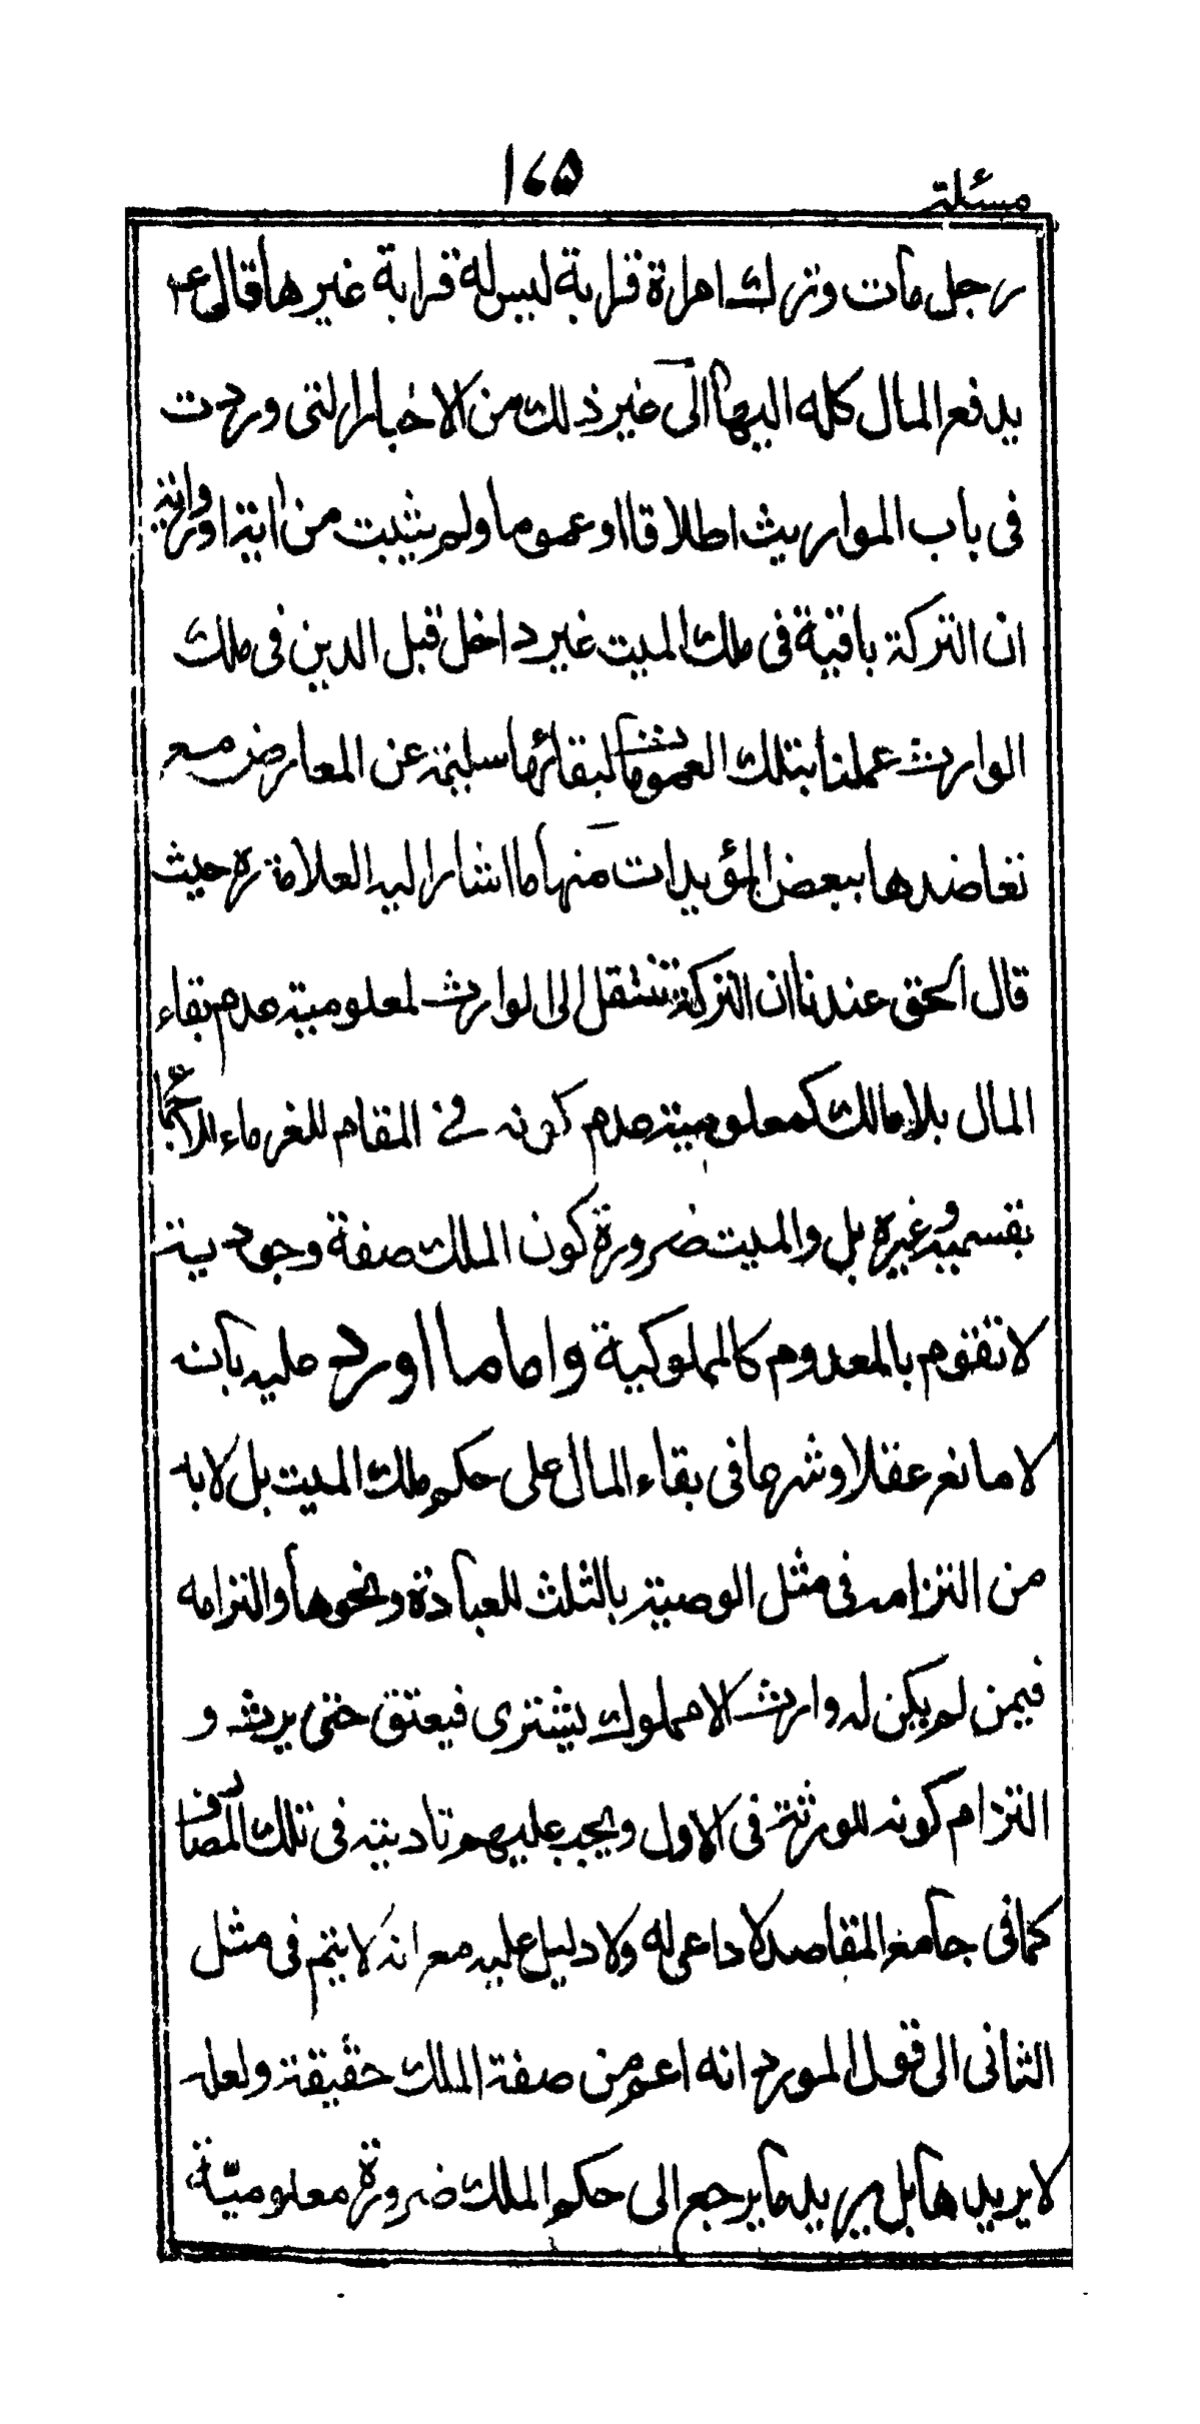 مسئلة
١٦٥
رجل مات وترك امراة قرابة ليس له قرابة غيرها قال ع
يدفع المال كله اليها الى غير ذلك من الاخبار التى وردت
فى باب المواريث اطلاقا او عموما ولم يثبت من اية او رواية
ان التركة باقية فى ملك الميت غير داخل قبل الدين فى ملك
الوارث عملنا بتلك العمومات لبقائها سليمة عن المعارض مع
تعاضدها ببعض المؤيدات منها ما اشار اليه العلامة ره حيث
قال الحق عندنا ان التركة تنتقل الى الوارث لمعلومية عدم بقاء
المال بلا مالك كمعلومية عدم كونه فى المقام للغرماء للاجماع
بقسميه وغيره بل والميت ضرورة كون الملك صفة وجودية
لا تقوم بالمعدوم كالمملوكية واما ما اورد عليه بانه
لا مانع عقلا و شرعا فى بقاء المال على حكم ملك الميت بل لابد
من التزامه فى مثل الوصية بالثلث للعبادة ونحوها والتزامه
فيمن لم يكن له وارث الا مملوك يشترى فيعتق حتى يرث و
التزام كونه للورثة فى الاول ويجب عليهم تاديته فى تلك المصارف
كما فى جامع المقاصد لا داعى له ولا دليل عليه مع انه لا يتم فى مثل
الثانى الى قول المورد انه اعم من صفة الملك حقيقة ولعله
لا يريدها بل يريد ما يرجع الى حكم الملك ضرورة معلوميّة